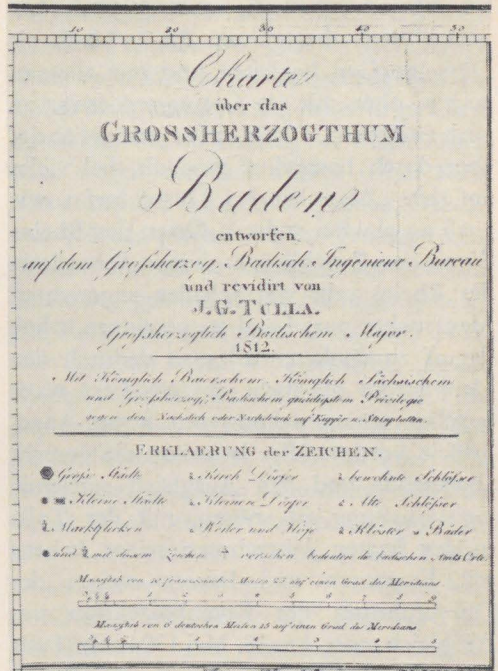 10 20 30 40 50
Charte
über das
GROSSHERZOGTHUM
Baden
entworfen
auf dem Großherzog. Badisch. Ingenieur Bureau
und revidirt von
J. G. TULLA.
Großherzoglich Badischem Major.
1812.
Mit Königlich Baierschem, Königlich Sächsischem
und Großherzog. Badischem gnädigstem Privilegio
gegen den Nachstich oder Nachdruck auf Kupfer u. Steinplatten.
ERKLAERUNG der ZEICHEN.
Große Städte Kirch Dörfer bewohnte Schlößer
Kleine Städte Kleinere Dörfer Alte Schlößer
Marktflecken Weiler und Höfe Klöster Bäder
und mit diesem Zeichen versehen bedeuten die badischen Amts Orte.
Maasstab von französischen Meilen 25 auf einen Grad des Meridians
Maasstab von 6 deutschen Meilen 15 auf einen Grad des Meridians